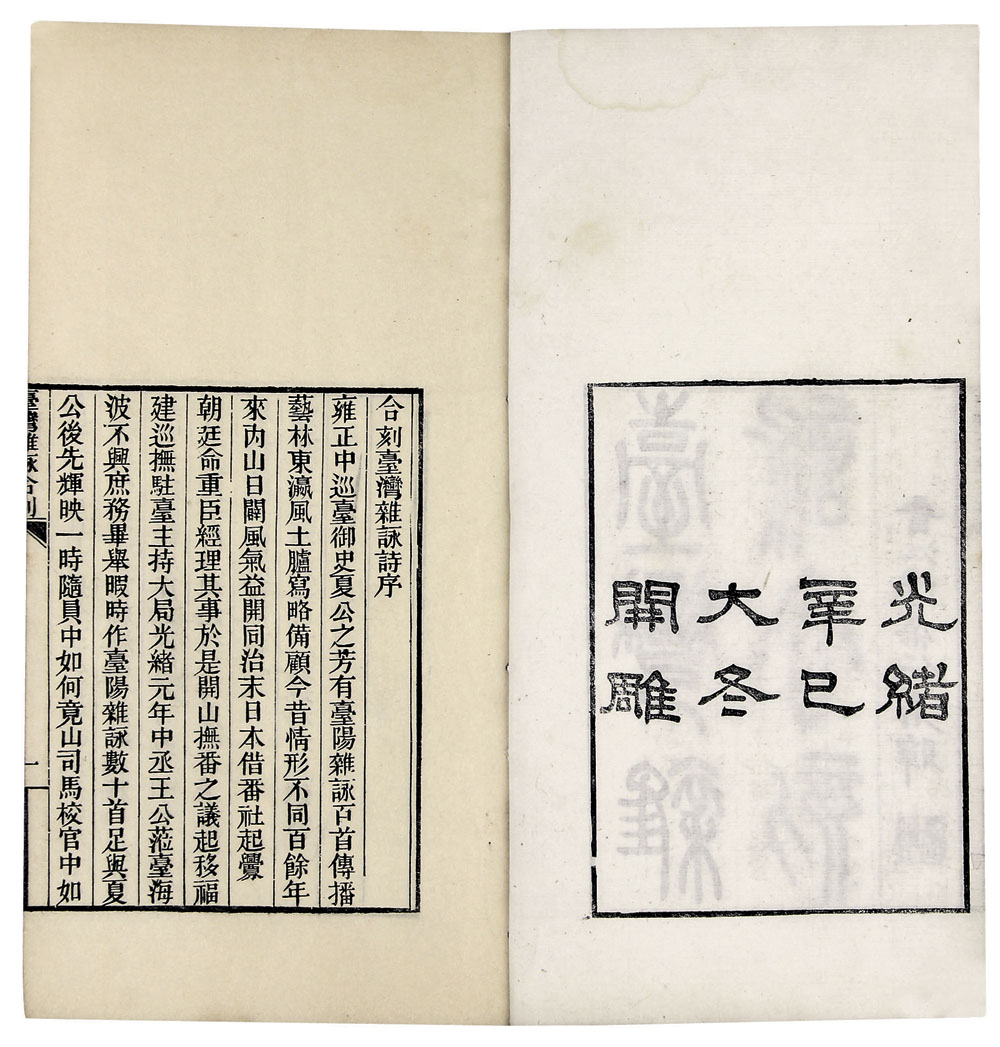 光緒
辛巳
大冬
開雕
合刻臺灣雜詠詩序
雍正中巡臺御史夏公之芳有臺陽雜詠百首傳播
藝林東瀛風土臚寫略備顧今昔情形不同百餘年
來內山日闢風氣益開同治末日本借番社起釁
朝廷命重臣經理其事於是開山撫番之議起移福
建巡撫駐臺主持大局光緒元年中丞王公蒞臺海
波不興庶務畢舉暇時作臺陽雜詠數十首足與夏
公後先輝映一時隨員中如何竟山司馬校官中如
臺灣雜詠合刻
一